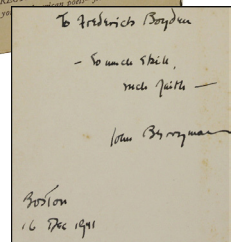 To Frederick Boyden
– So much skill,
such faith –
John Berryman
Boston
16 Dec 1941